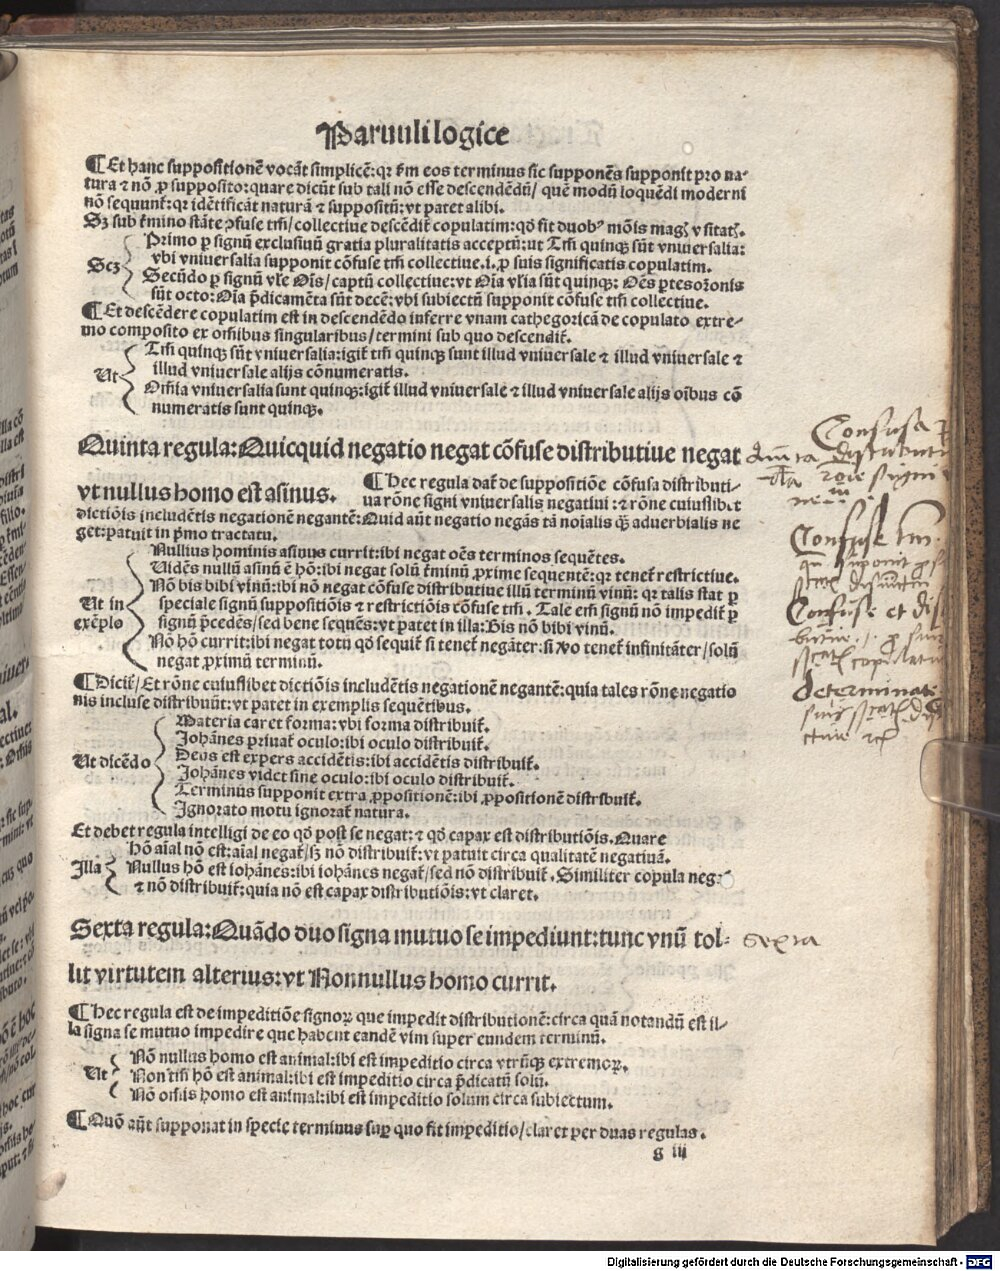 Paruuli logice
¶ Et hanc suppositionē vocāt simplicē: qꝛ ẜm eos terminus sic supponēs supponit pro na-
tura ⁊ nō ꝓ supposito: quare dicūt sub tali nō esse descendēdū/ quē modū loquēdi moderni
nō sequunt᷑: qꝛ idētificāt naturā ⁊ suppositū: vt patet alibi.
Sꝫ sub ẜmino stāte ꝯfuse tm̄/ collectiue descēdit᷑ copulatim: qđ fit duobꝰ mōis magꝭ vsitatꝭ.
Primo ꝑ signū exclusiuū gratia pluralitatis acceptū: ut Tm̄ quinqꝫ sūt vniuersalia:
vbi vniuersalia supponit cōfuse tm̄ collectiue .i. ꝓ suis significatis copulatim.
Scꝫ
Secūdo ꝑ signū vl̄e Oīs/ captū collectiue: vt Oīa vl̄ia sūt quinqꝫ: Oēs ꝑtes orōnis
sūt octo: Oīa p̄dicamēta sūt decē: vbi subiectū supponit cōfuse tm̄ collectiue.
¶ Et descēdere copulatim est in descendēdo inferre vnam cathegoricā de copulato extre-
mo composito ex om̄ibus singularibus/ termini sub quo descendit᷑.
Tm̄ quinqꝫ sūt vniuersalia: igit᷑ tm̄ quinqꝫ sunt illud vniuersale ⁊ illud vniuersale ⁊
illud vniuersale alijs cōnumeratis.
Ut
Om̄ia vniuersalia sunt quinqꝫ: igit᷑ illud vniuersale ⁊ illud vniuersale alijs oībus cō
numeratis sunt quinqꝫ.
Quinta regula: Quicquid negatio negat cōfuse distributiue negat
vt nullus homo est asinus.
¶ Hec regula dat᷑ de suppositiōe cōfusa distributi-
ua rōne signi vniuersalis negatiui: ⁊ rōne cuiuslibet
dictiōis includētis negationē negantē: Quid aūt negatio negās tā noīalis qꝫ̄ aduerbialis ne
get: patuit in p̄mo tractatu.
Nullius hominis asinus currit: ibi negat oēs terminos sequētes.
Uidēs nullū asinū ē hō: ibi negat solū ẜminū ꝓxime sequentē: qꝛ tenet᷑ restrictiue.
Nō bis bibi vinū: ibi nō negat cōfuse distributiue illū terminū vinū: qꝛ talis stat ꝑ
Ut in
exēplo
speciale signū suppositiōis ⁊ restrictiōis cōfuse tm̄. Tale em̄ signū nō impedit᷑ ꝑ
signū p̄cedēs/ sed bene sequēs: vt patet in illa: Bis nō bibi vinū.
Nō hō currit: ibi negat totū qđ sequit᷑ si tenet᷑ negāter: si ꝟo tenet᷑ infinitāter/ solū
negat ꝓximū terminū.
¶ Dicit᷑/ Et rōne cuiuslibet dictiōis includētis negationē negantē: quia tales rōne negatio
nis incluse distribuūt: vt patet in exemplis sequētibus.
Materia caret forma: vbi forma distribuit᷑.
Johānes priuat᷑ oculo: ibi oculo distribuit᷑.
Ut dicēdo
Deus est expers accidētis: ibi accidētis distribuit᷑.
Johānes videt sine oculo: ibi oculo distribuit᷑.
Terminus supponit extra ꝓpositionē: ibi ꝓpositionē distribuit᷑.
Ignorato motu ignorat᷑ natura.
Et debet regula intelligi de eo qđ post se negat: ⁊ qđ capax est distributiōis. Quare
hō aīal nō est: aīal negat᷑/ sꝫ nō distribuit᷑: vt patuit circa qualitatē negatiuā.
Illa
Nullus hō est iohānes: ibi iohānes negat᷑/ sed nō distribuit᷑. Similiter copula nega
⁊ nō distribuit᷑: quia nō est capax distributiōis: vt claret.
Sexta regula: Quādo duo signa mutuo se impediunt: tunc vnū tol-
lit virtutem alterius: vt Nonnullus homo currit.
¶ Hec regula est de impeditiōe signoꝝ que impedit distributionē: circa quā notandū est il-
la signa se mutuo impedire que habent eandē vim super eundem terminū.
Nō nullus homo est animal: ibi est impeditio circa vtrūqꝫ extremoꝝ.
Ut
Non tm̄ hō est animal: ibi est impeditio circa p̄dicatū solū.
Nō om̄is homo est animal: ibi est impeditio solum circa subiectum.
¶ Quō aūt supponat in specie terminus suꝑ quo fit impeditio/ claret per duas regulas.
g iii
Confusa
Confuse tm̄
Confuse et dis
determinate
sexta
Digitalisierung gefördert durch die Deutsche Forschungsgemeinschaft - DFG